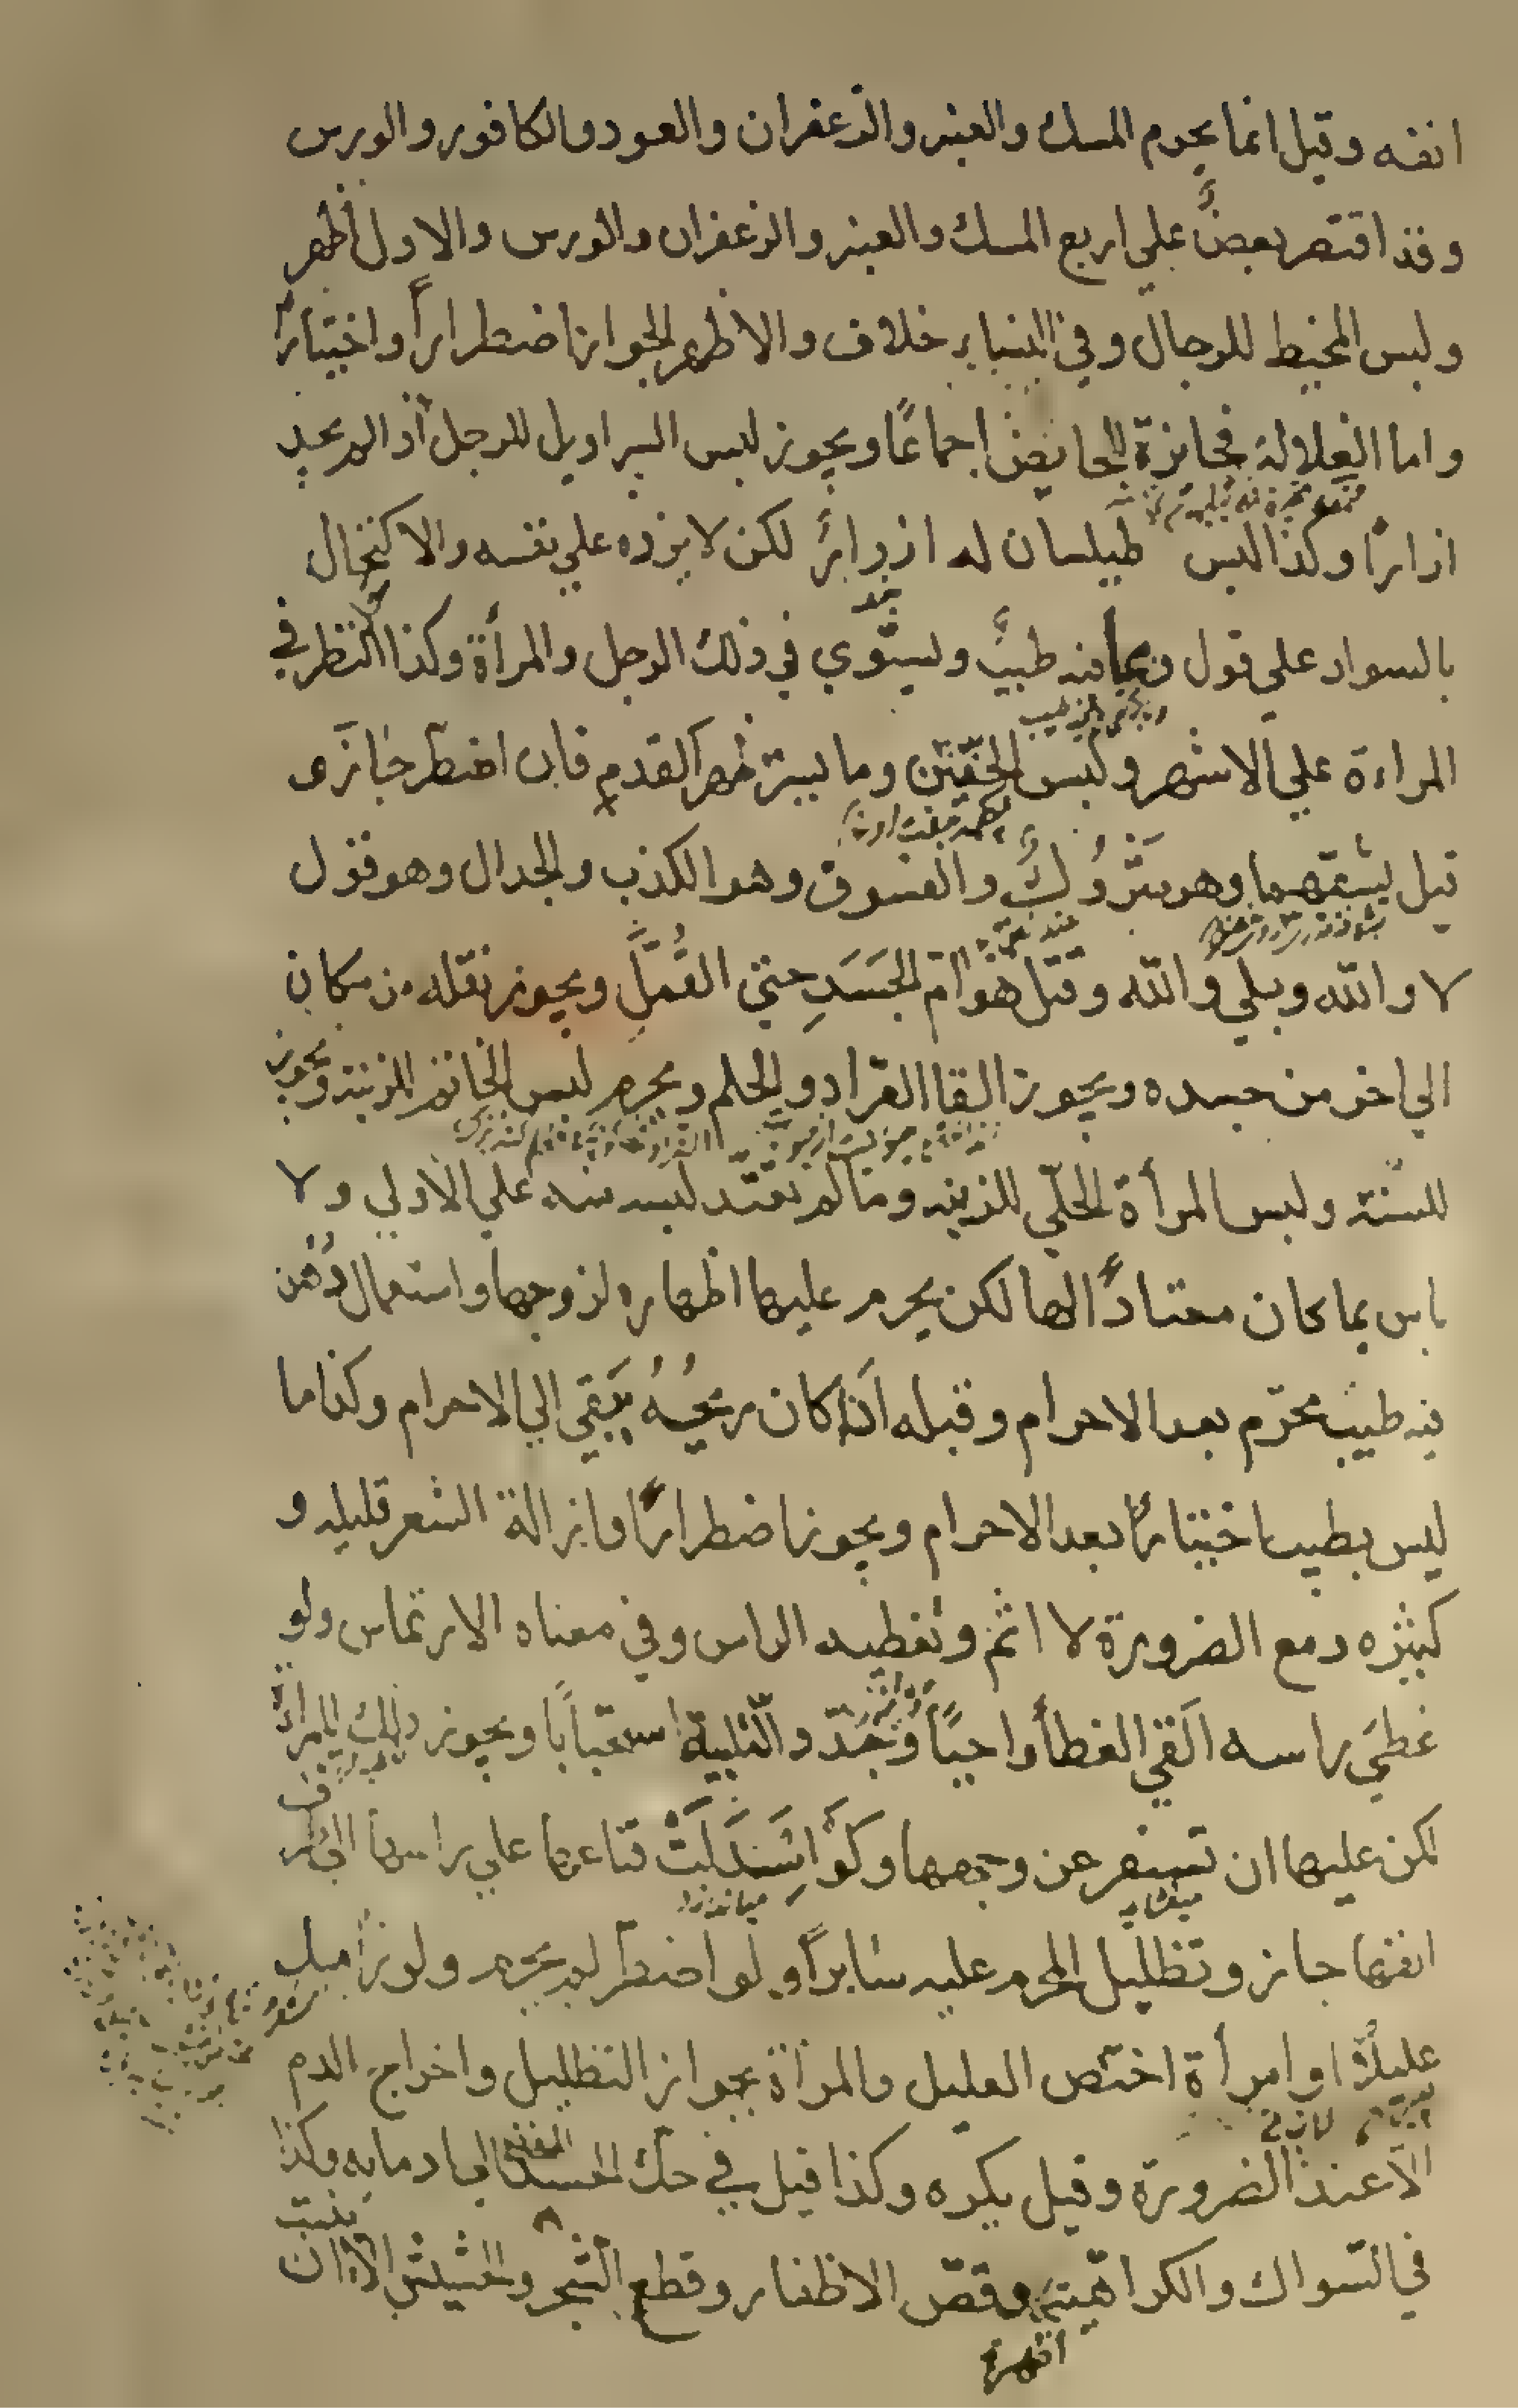 انفه وقيل انما يحرم المسك والعنبر والزعفران والعود والكافور والورس
وقد اقتصر بعض علي اربع المسك والعنبر والزعفران والورس والاول اظهر
ولبس المخيط للرجال وفي النساء خلاف والاظهر الجواز اضطراراً واختياراً
واما الغلالة فجائزة للحائض اجماعاً ويجوز لبس السراويل للرجل اذا لم يجد
ازاراً وكذا لبس طيلسان له ازرار لكن لا يزره علي نفسه والاكتحال
بالسواد علي قول وبما فيه طيب ويستوي في ذلك الرجل والمرأة وكذا النظر في
المراءة علي الاشهر ولبس الخفين وما يستر ظهر القدم فان اضطر جاز و
قيل يشقهما وهو متروك والفسوق وهو الكذب والجدال وهو قول
لا والله وبلي والله وقتل هوام الجسد حتي القمل ويجوز نقله من مكان
الي اخر من جسده ويجوز القا القراد والحلم ويحرم لبس الخاتم للزينة ويجوز
للسنة ولبس المرأة الحلي للزينه وما لم تعتد لبسه منه علي الاولي ولا
باس بما كان معتاداً لها لكن يحرم عليها اظهاره لزوجها واستعمال دهن
فيه طيب محرّم بعد الاحرام وقبله اذا كان ريحه يبقي الي الاحرام وكذا ما
ليس بطيب اختياراً بعد الاحرام ويجوز اضطراراً وازالة الشعر قليله و
كثيره ومع الضرورة لا اثم وتغطيه الراس وفي معناه الارتماس ولو
غطي راسه القي الغطأ واجباً وجدّد التلبية استحباباً ويجوز ذلك للمرأة
لكن عليها ان تسفر عن وجهها ولو اسدلت قناعها علي راسها الي طرف
انفها جاز وتظليل المحرم عليه سايراً ولو اضطر لم يحرم ولو زامل
عليلاً او امرأة اختص العليل والمرأة بجواز التظليل واخراج الدم
الا عند الضرورة وقيل يكره وكذا قيل في حك الجسد المفضي الي ادمايه وكذا
في السواك والكراهية اظهر وقص الاظفار وقطع الشجر والحشيش الا ان ينبت